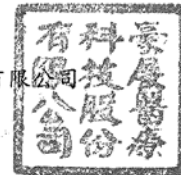 有限公司
豪展醫療
科技股份
有限公司